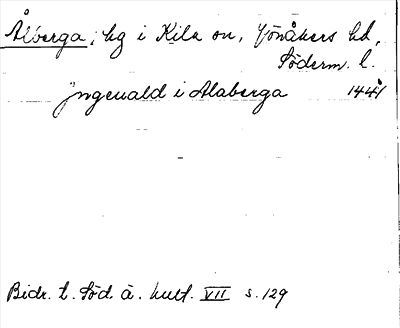 Ålberga, hg i Kila sn, Jönåkers hd,
Söderm. l.
Jngeuald i Alaberga 1441
Bidr. t. Söd. ä. kult. VII s. 129